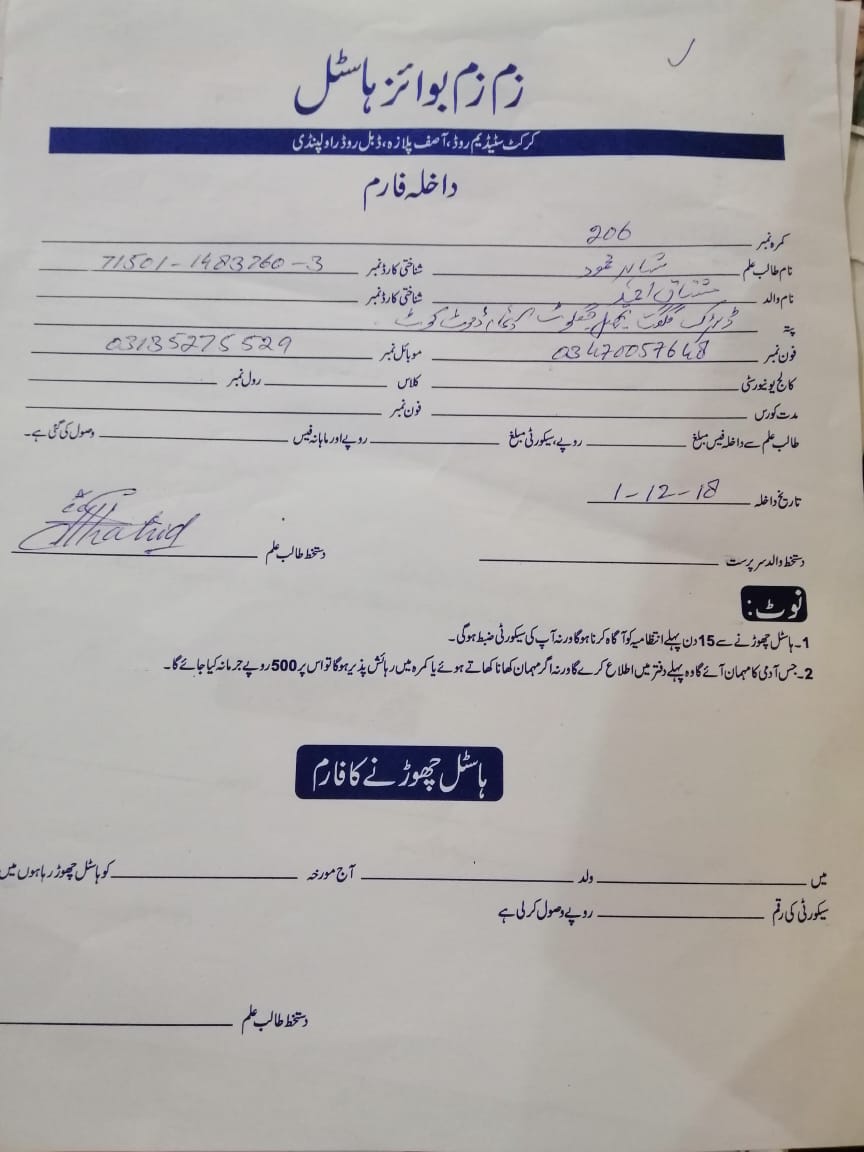 زم زم بوائز ہاسٹل
کرکٹ سٹیڈیم روڈ، آصف پلازہ، ڈبل روڈ راولپنڈی
داخلہ فارم
کمرہ نمبر 206
نام طالب علم شاہد محمود شناختی کارڈ نمبر 71501-1483760-3
نام والد مشتاق احمد شناختی کارڈ نمبر
پتہ ڈسٹرکٹ گلگت تحصیل جگلوٹ
فون نمبر 03470057648 موبائل نمبر 03135275529
کالج یونیورسٹی کلاس رول نمبر
مدت کورس فون نمبر
طالب علم سے داخلہ فیس مبلغ روپے، سیکورٹی مبلغ روپے اور ماہانہ فیس وصول کی گئی ہے۔
تاریخ داخلہ 1-12-18
دستخط والد سرپرست دستخط طالب علم Shahid
نوٹ:
1۔ ہاسٹل چھوڑنے سے 15 دن پہلے انتظامیہ کو آگاہ کرنا ہوگا ورنہ آپ کی سیکورٹی ضبط ہوگی۔
2۔ جس آدمی کا مہمان آئے گا وہ پہلے دفتر میں اطلاع کرے گا ورنہ اگر مہمان کھانا کھاتے ہوئے یا کمرہ میں رہائش پذیر ہوگا تو اس پر 500 روپے جرمانہ کیا جائے گا۔
ہاسٹل چھوڑنے کا فارم
میں ولد آج مورخہ کو ہاسٹل چھوڑ رہا ہوں میں
سیکورٹی کی رقم روپے وصول کرلی ہے
دستخط طالب علم